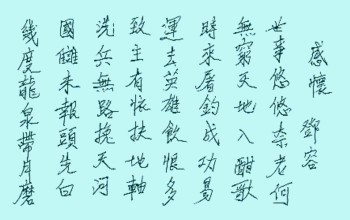 感懷 鄧容
世事悠悠奈老何
無窮天地入酣歌
時來屠釣成功易
運去英雄飲恨多
致主有懷扶地軸
洗兵無路挽天河
國讎未報頭先白
幾度龍泉帶月磨